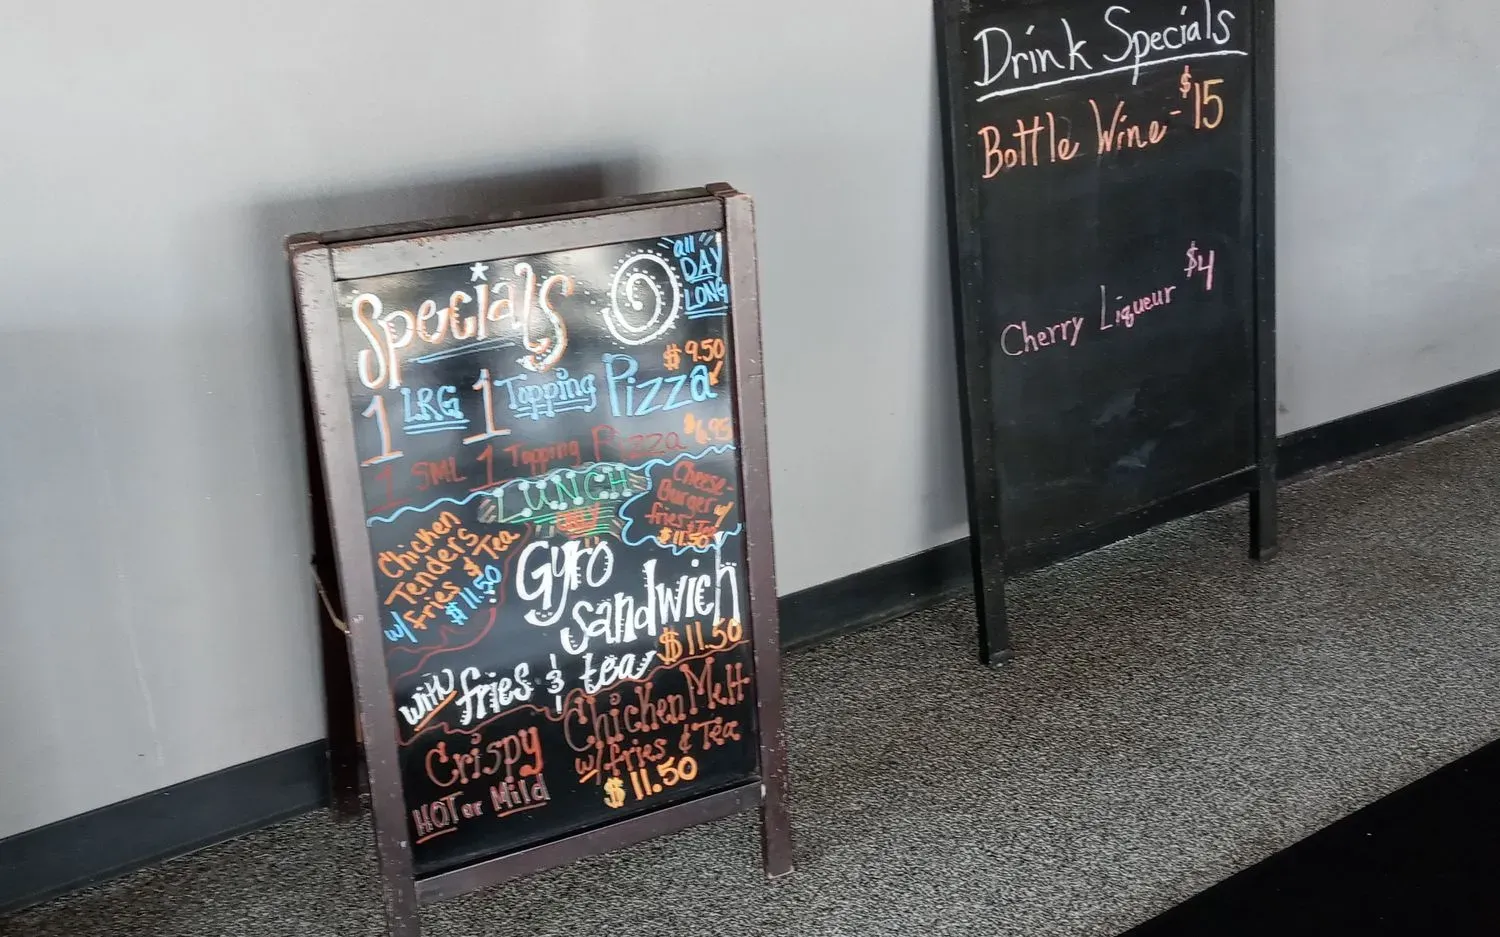 Specials
all
DAY
LONG
$9.50
1 LRG 1 Topping Pizza
1 SML 1 Topping Pizza $6.95
LUNCH
ONLY
Chicken
Tenders
w/ fries & Tea
$11.50
Cheese
Burger w/
fries & Tea
$11.50
Gyro
sandwich
$11.50
with fries & tea
Crispy
HOT or Mild
Chicken Melt
w/fries & Tea
$11.50
Drink Specials
Bottle Wine - $15
Cherry Liqueur $4